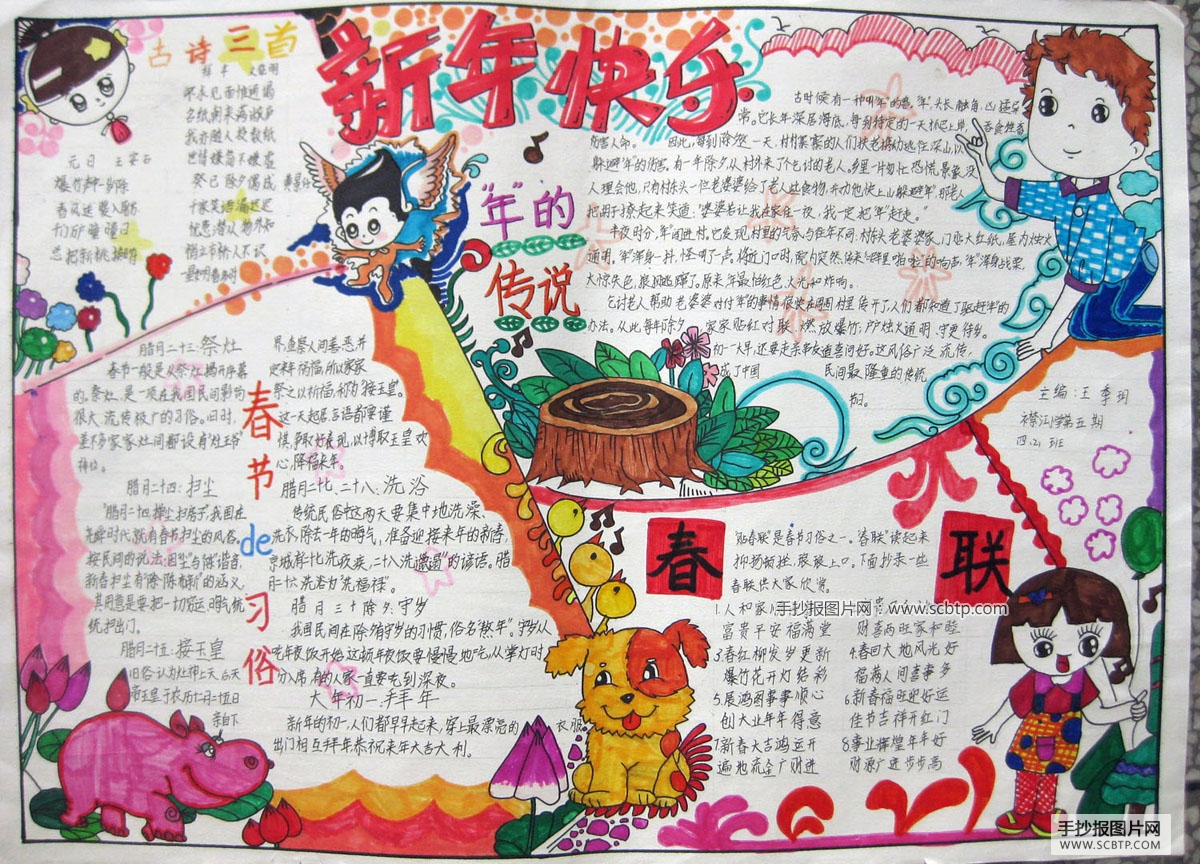 新年快乐
古诗三首
拜年 文徵明
不求见面惟通谒
名纸朝来满敝庐
我亦随人投数纸
世情嫌简不嫌虚
元日 王安石
爆竹声中一岁除
春风送暖入屠苏
千门万户曈曈日
总把新桃换旧符
癸巳除夕偶成
千家笑语漏迟迟
忧患潜从物外知
悄立市桥人不识
"年"的
传说
古时候有一种叫"年"的兽,"年"头长触角,凶猛异
常。它长年深居海底,每到特定的一天才爬上岸,吞食牲畜
伤害人命。因此,每到除夕这一天,村村寨寨的人们扶老携幼逃往深山,以
躲避"年"的伤害。有一年除夕,从村外来了个乞讨的老人。乡里一片匆忙恐慌景象,没
人理会他,只有村东头一位老婆婆给了老人些食物,并劝他快上山躲避"年",那老人
把胡子撩起来笑道:"婆婆若让我在家住一夜,我一定把"年"赶走。"
半夜时分,"年"闯进村。它发现村里的气氛与往年不同:村东头老婆婆家,门贴大红纸,屋内烛火
通明,"年"浑身一抖,怪叫了一声,将近门口时,院内突然传来"砰砰啪啪"的响声,"年"浑身战栗,
大惊失色,狼狈逃蹿了。原来"年"最怕红色、火光和炸响。
乞讨老人帮助老婆婆对付"年"的事情很快在周围村里传开了,人们都知道了驱赶"年"的
办法。从此每年除夕,家家贴红对联、燃放爆竹;户户烛火通明、守更待岁。
初一大早,还要走亲串友道喜问好。这风俗广泛流传,
成了中国民间最隆重的传统
节日。
主编:王季玥
襟江小学第五期
四.21班
春节de习俗
腊月二十三:祭灶
春节一般是从祭灶揭开序幕
的。祭灶,是一项在我国民间影响
很大、流传极广的习俗。旧时,
差不多家家灶间都设有"灶王爷"
神位。
腊月二十四:扫尘
"腊月二十四,掸尘扫房子",我国在
尧舜时代就有春节扫尘的风俗。
按民间的说法:因"尘"与"陈"谐音,
新春扫尘有"除陈布新"的涵义,
其用意是要把一切穷运、晦气统
统扫出门。
腊月二十五:接玉皇
旧俗认为灶神上天后,天
帝玉皇于农历12月25日
亲自下
界,查察人间善恶,并
定来年祸福,所以家家
祭之以祈福,称为"接玉皇"。
这一天起居、言语都要谨
慎,争取好表现,以博取玉皇欢
心,降福来年。
腊月二十七、二十八:洗浴
传统民俗中这两天要集中地洗澡、
洗衣,除去一年的晦气,准备迎接来年的新春,
京城有"二十七洗疚疾,二十八洗邋遢"的谚语。腊
月二十七洗浴为"洗福禄"。
腊月三十除夕:守岁
我国民间在除夕有守岁的习惯,俗名"熬年"。守岁从
吃年夜饭开始,这顿年夜饭要慢慢地吃,从掌灯时
分入席,有的人家一直要吃到深夜。
大年初一:拜年
新年的初一,人们都早早起来,穿上最漂亮的衣服,
出门相互拜年恭祝来年大吉大利。
春联
"贴春联"是春节习俗之一。"春联"读起来
抑扬顿挫,琅琅上口。下面抄录一些
春联供大家欣赏。
手抄报图片网:www.scbtp.com
1.人和家
富贵平安福满堂
财喜两旺家和睦
3.春红柳发岁更新
爆竹花开灯结彩
4.春回大地风光好
福满人间喜事多
5.展鸿图事事顺心
创大业年年得意
6.新春福旺迎好运
佳节吉祥开红门
7.新春大吉鸿运开
遍地流金广财进
8.事业辉煌年年好
财源广进步步高
手抄报图片网
WWW.SCBTP.COM